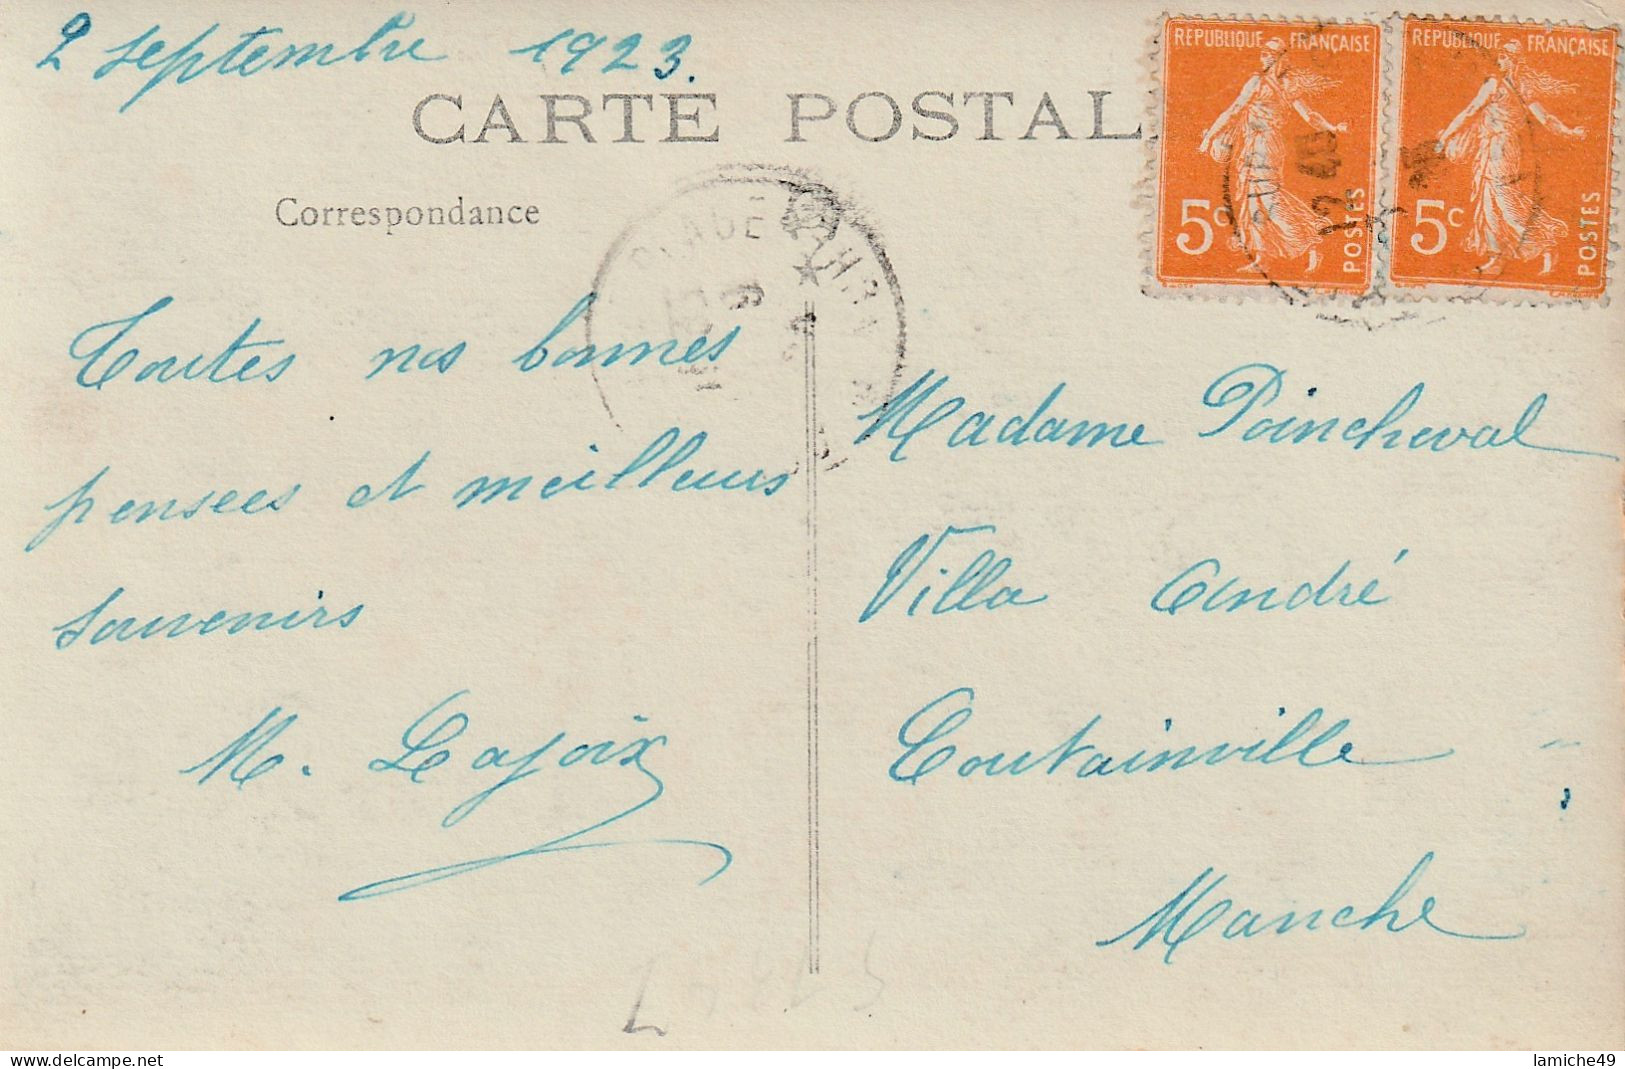 2 septembre 1923.
CARTE POSTALE
Correspondance
REPUBLIQUE FRANÇAISE
5c
POSTES
REPUBLIQUE FRANÇAISE
5c
POSTES
Toutes nos bonnes
pensees et meilleurs
souvenirs
M. Lajoix
Madame Poincheval
Villa André
Coutainville
Manche
www.delcampe.net
lamiche49